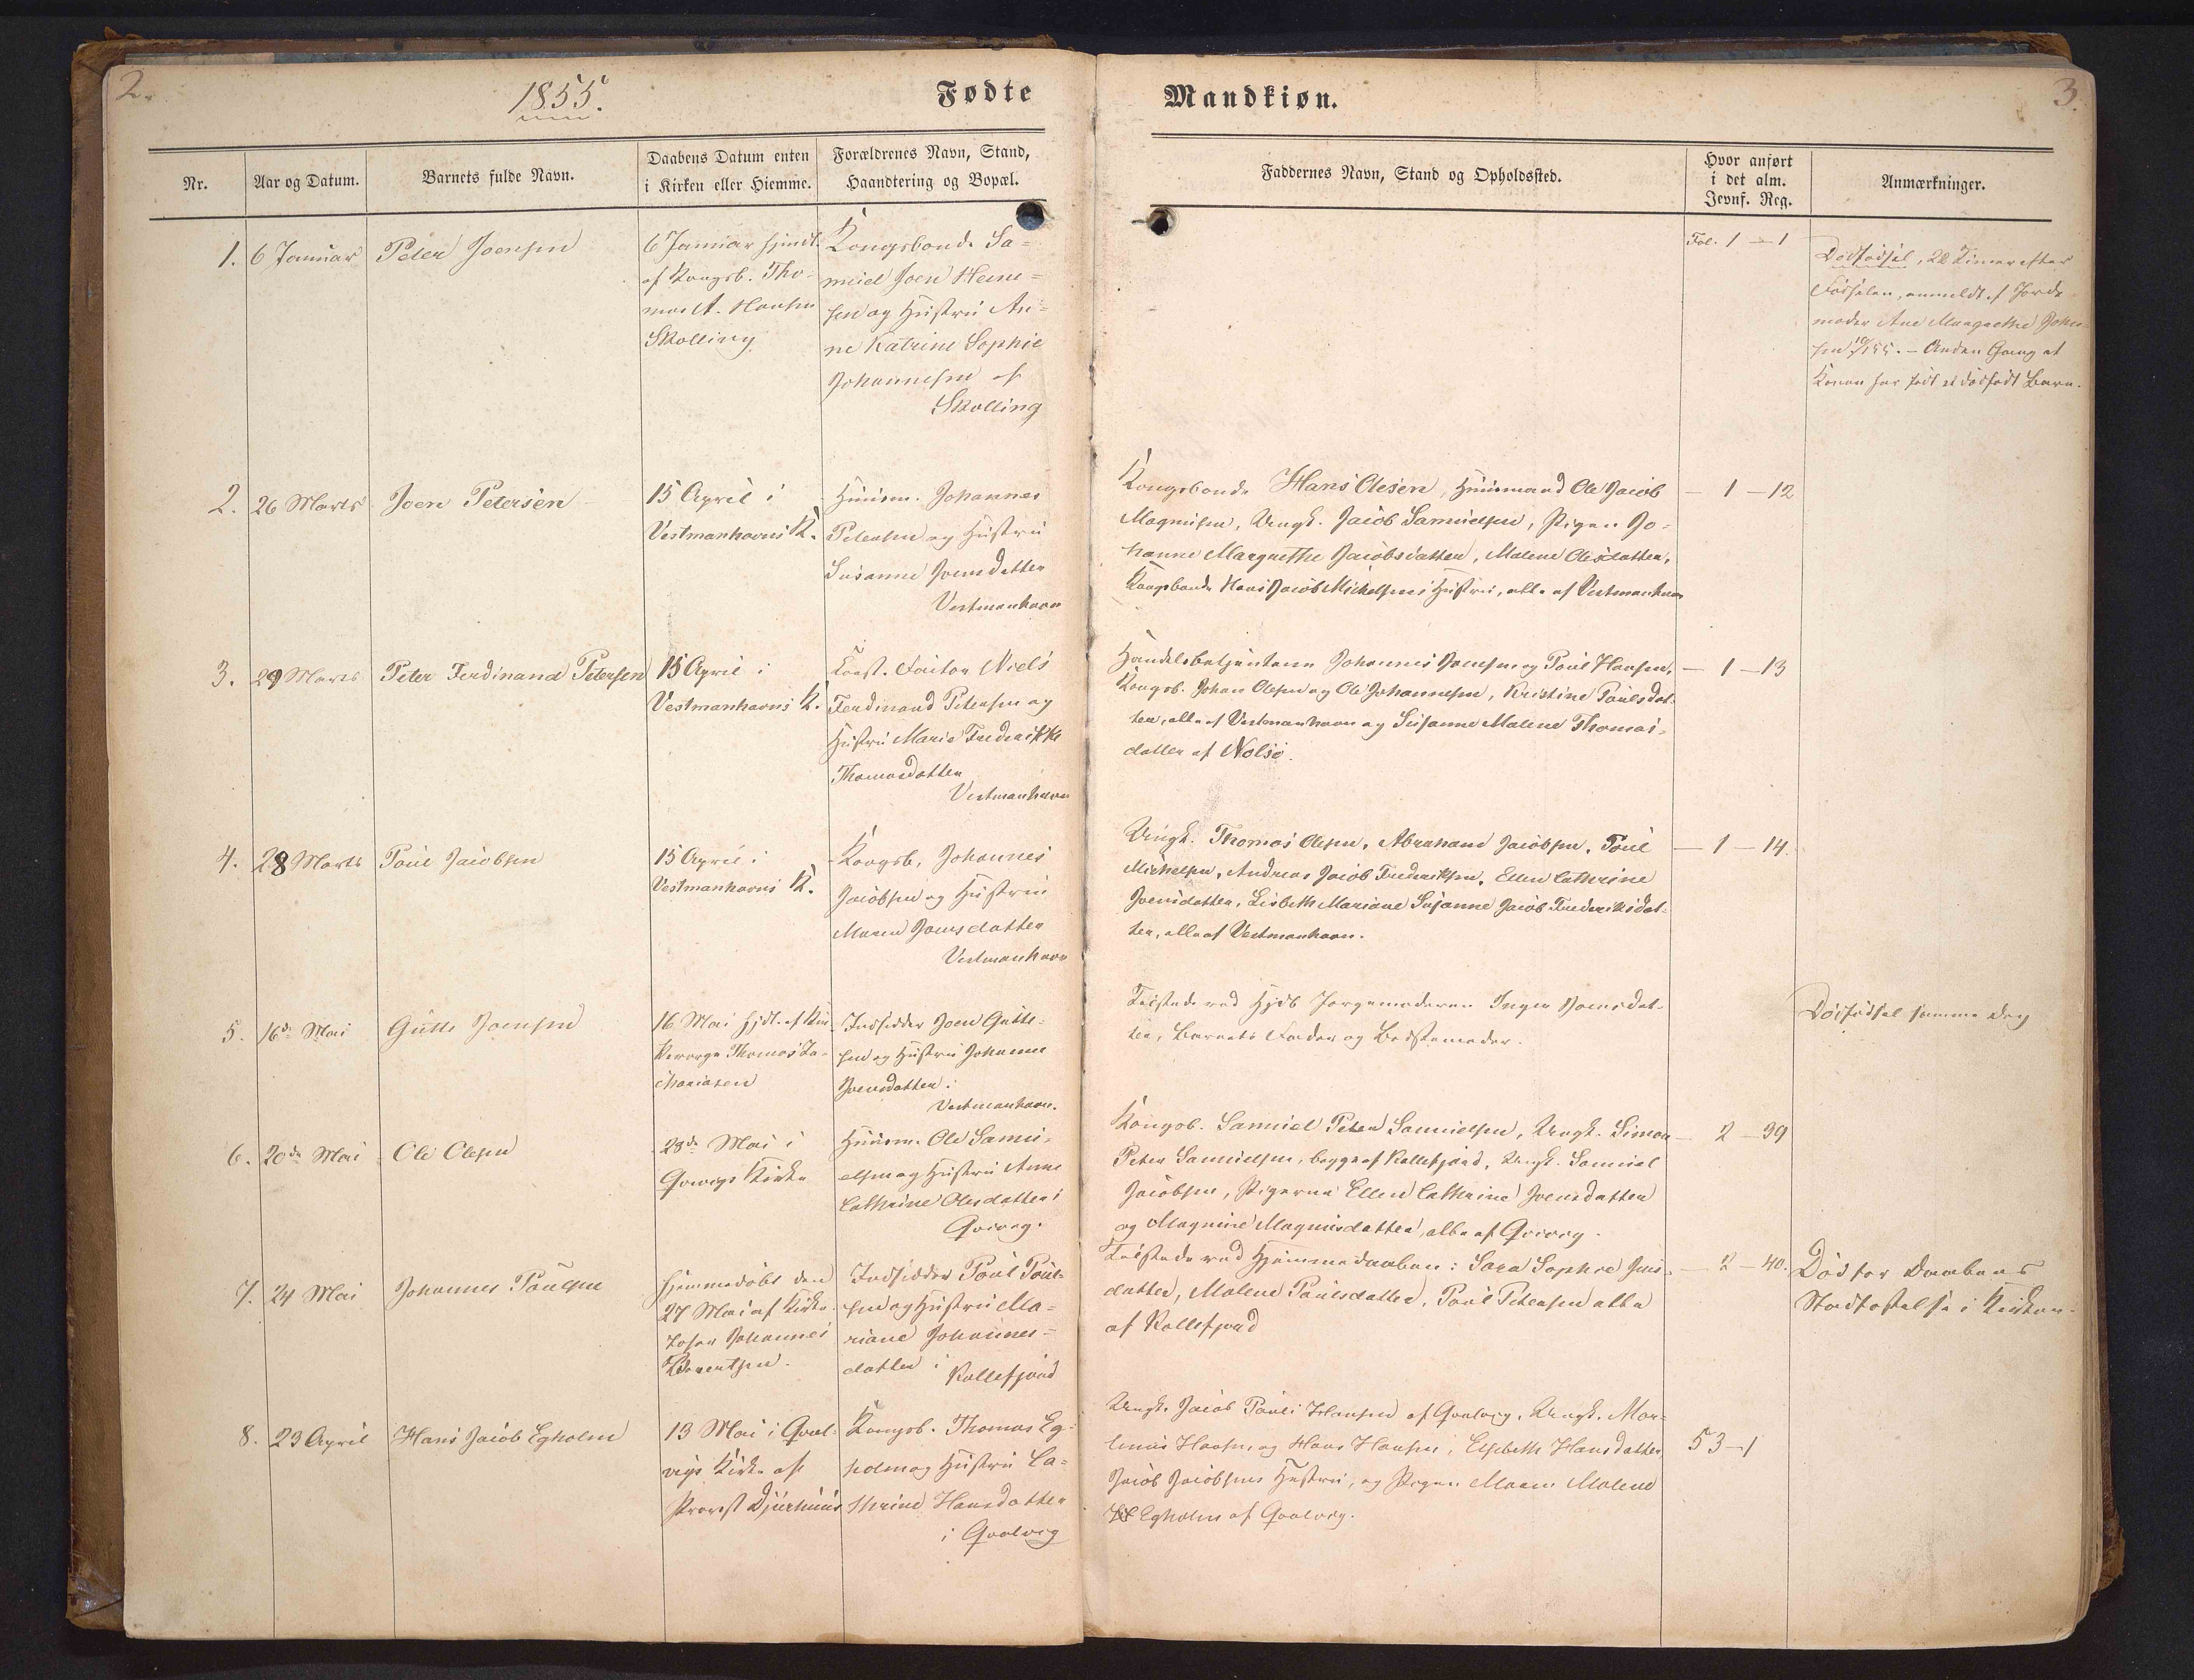 2.
1855.
Fødte
Mandkiøn.
3.
Nr.
Aar og Datum.
Barnets fulde Navn.
Daabens Datum enten
i Kirken eller Hiemme.
Forældrenes Navn, Stand,
Haandtering og Bopæl.
Faddernes Navn, Stand og Opholdssted.
Hvor anført
i det alm.
Jevnf. Reg.
Anmærkninger.
1.
6 Januar
Peter Joensen
6 Januar hjmdt.
af Kongsb. Tho-
mas A. Hansen
Skælling
Kongsbonde Sa-
muel Joen Hein-
sen og Hustru An-
ne Katrine Sophie
Johannesen af
Skælling
Fol. 1 - 1
Dødfødsel, 22 Timer efter
Fødselen, anmeldt af Jorde-
moder Ane Margrethe Johan-
sen. - Anden Gang at
Konen har født et dødfødt Barn.
2.
26 Marts
Joen Petersen
15 April i
Vestmanhavns K.
Huusm. Johannes
Petersen og Hustru
Susanne Joensdatter
Vestmanhavn
Kongsbonde Hans Olesen, Huusmand Ole Jacob
Magnusen, Ungk. Jacob Samuelsen, Pigen Jo-
hanne Margrethe Jacobsdatter, Malene Olesdatter,
Kongsbonde Hans Jacob Michelsens Hustru, alle af Vestmanhavn
- 1 - 12
3.
29 Marts
Peter Ferdinand Petersen
15 April i
Vestmanhavns K.
Const. Factor Niels
Ferdinand Petersen og
Hustru Marie Frederikke
Thomasdatter
Vestmanhavn
Handelsbetjentene Johannes Joensen og Poul Hansen,
Kongsb. Johan Olesen og Ole Johannesen, Kristine Poulsdat-
ter, alle af Vestmanhavn og Susanne Malene Thomas-
datter af Nolsø.
- 1 - 13
4.
28 Marts
Poul Jacobsen
15 April i
Vestmanhavns K.
Kongsb. Johannes
Jacobsen og Hustru
Maren Joensdatter
Vestmanhavn
Ungk. Thomas Olesen, Abraham Jacobsen, Poul
Michelsen, Andreas Jacob Frederiksen, Ellen Cathrine
Joensdatter, Lisbeth Mariane Susanne Jacob Frederiksdat-
ter, alle af Vestmanhavn.
- 1 - 14.
5.
16de Mai
Gutte Joensen
16 Mai hjdt. af Kir-
keværge Thomas Za-
chariasen
Indsidder Joen Gutte-
sen og Hustru Johanne
Joensdatter i
Vestmanhavn.
Tilstede ved Hjdb Jorgemoderen Inger Joensdat-
ter, Barnets Fader og Bedstemoder.
Dødfødsel samme Dag
6.
20de Mai
Ole Olesen
28de Mai i
Qvivigs Kirke
Huusm. Ole Samu-
elsen og Hustru Anne
Cathrine Olesdatter i
Qvivig.
Kongsb. Samuel Peter Samuelsen, Ungk. Simon
Peter Samuelsen, begge af Kollefjord, Ungk. Samuel
Jacobsen, Pigerne Ellen Cathrine Joensdatter
og Magnine Magnusdatter, alle af Qvivig.
2 - 39
7.
24 Mai
Johannes Poulsen
Hjemmedøbt den
27 Mai af Kirke-
læser Johannes
Berentsen.
Indsidder Poul Poul-
sen og Hustru Ma-
riane Johannes-
datter i Kollefjord
Tilstede ved Hjemmedaaben: Sara Sophie Jens-
datter, Malene Poulsdatter, Poul Petersen alle
af Kollefjord
- 2 - 40.
Død før Daabens
Stadfæstelse i Kirken
8.
23 April
Hans Jacob Egholm
13 Mai i Qval-
vigs Kirke af
Provst Djurhuus
Kongsb. Thomas Eg-
holm og Hustru Ca-
thrine Hansdatter
i Qvalvig
Ungk. Jacob Pauli Hansen af Qvalvig, Ungk. Mar-
linus Hansen, og Hans Hansen, Elsebeth Hansdatter,
Jacob Jacobsens Hustru, og Pigen Maren Malene
Egholm af Qvalvig.
53 - 1